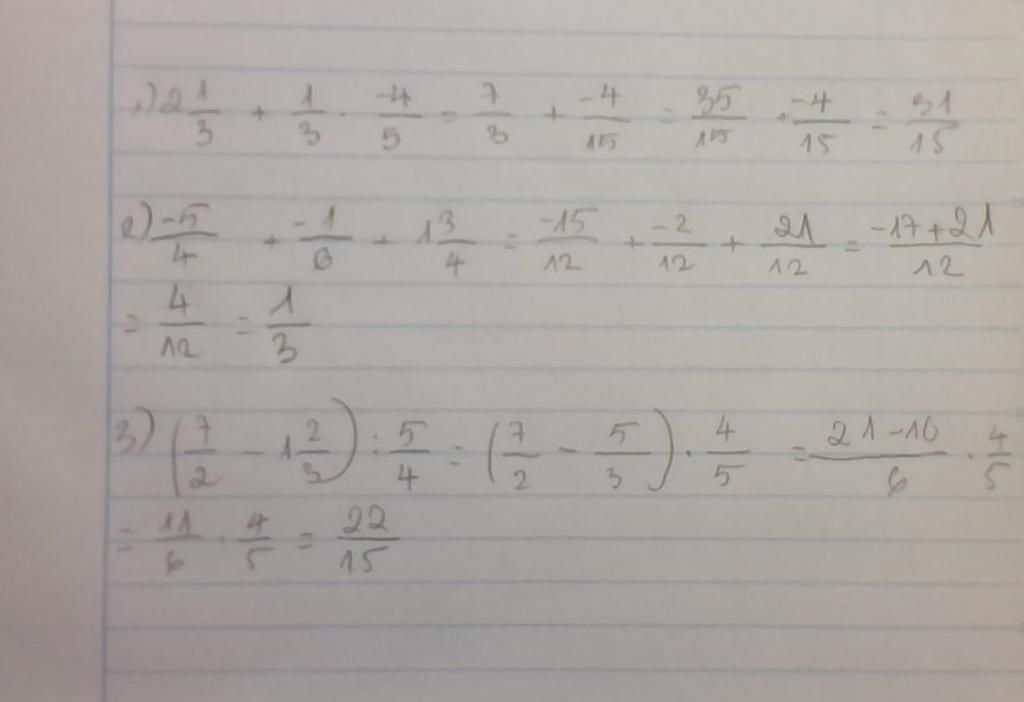 1) 2 1/3 + 1/3 · -4/5 = 7/3 + -4/15 = 35/15 + -4/15 = 31/15
2) -5/4 + -1/6 + 1 3/4 = -15/12 + -2/12 + 21/12 = -17+21/12
= 4/12 = 1/3
3) (7/2 - 1 2/3) : 5/4 = (7/2 - 5/3) · 4/5 = 21-10/6 · 4/5
= 11/6 · 4/5 = 22/15